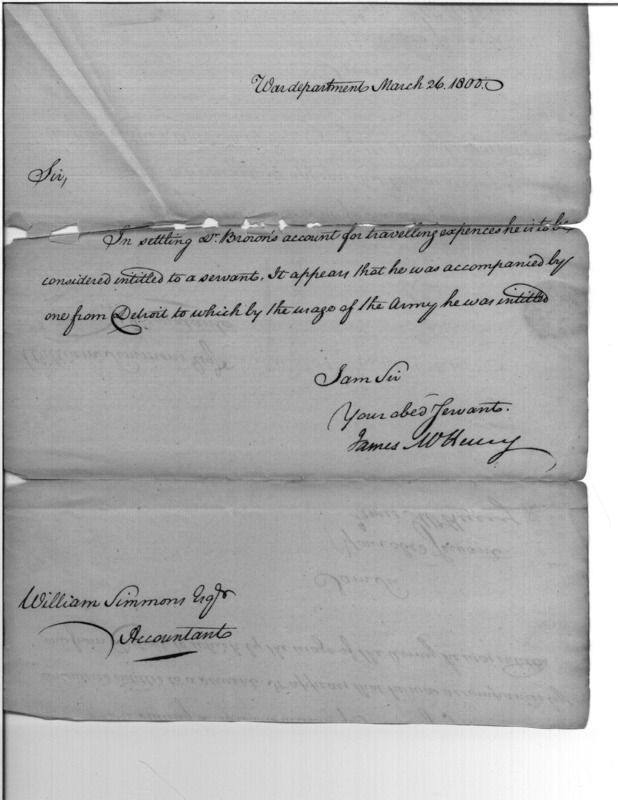 War department March 26. 1800.
Sir,
In settling Dr. Brown's account for travelling expences he is to be
considered intitled to a servant. It appears that he was accompanied by
one from Detroit to which by the usage of the Army he was intitled
I am Sir
Your obed Servant.
James McHenry
William Simmons Esqr
Accountant